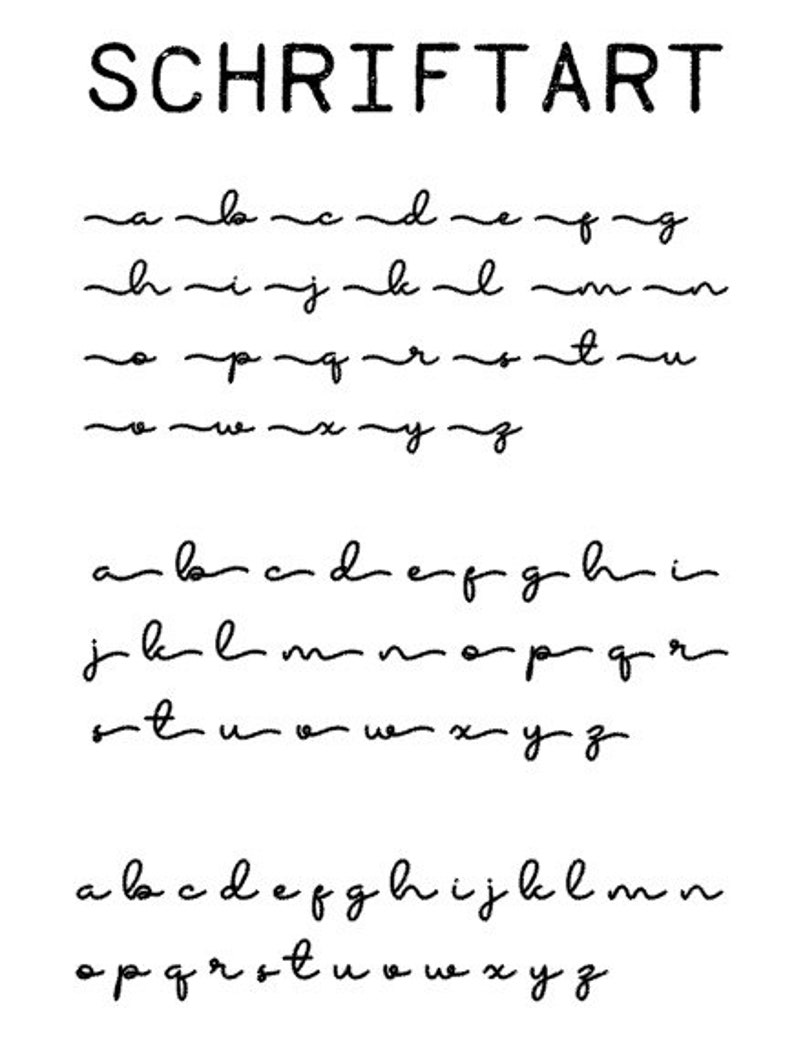 SCHRIFTART
a b c d e f g
h i j k l m n
o p q r s t u
v w x y z
a b c d e f g h i
j k l m n o p q r
s t u v w x y z
a b c d e f g h i j k l m n
o p q r s t u v w x y z